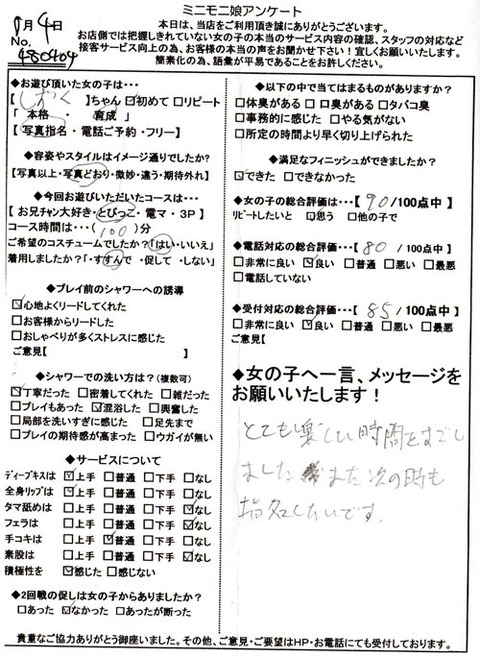 ミニモニ娘アンケート
月4日
No.
480404
本日は、当店をご利用頂き誠にありがとうございます。
お店側では把握しきれていない女の子の本当のサービス内容の確認、スタッフの対応など
接客サービス向上の為、お客様の本当の声をお聞かせ下さい！宜しくお願いいたします。
簡素化の為、語彙が平易であることをお許しください。
◆お遊び頂いた女の子は・・・
【しずく】ちゃん ☑初めて □リピート
【 本格 ・ 育成 】
【写真指名・電話ご予約・フリー】
◆容姿やスタイルはイメージ通りでしたか?
【写真以上・写真どおり・微妙・違う・期待外れ】
◆今回お遊びいただいたコースは・・・
【お兄チャン大好き・とびっこ・電マ・3P】
コース時間は・・・(100)分
ご希望のコスチュームでしたか?「はい・いいえ」
着用しましたか?「・すすんで ・促して ・しない」
◆プレイ前のシャワーへの誘導
☑心地よくリードしてくれた
□お客様からリードした
□おしゃべりが多くストレスに感じた
ご意見【 】
◆シャワーでの洗い方は?(複数可)
☑丁寧だった □密着してくれた □雑だった
□プレイもあった ☑混浴した □興奮した
□局部を洗いすぎに感じた □足先まで
□プレイの期待感が高まった □ウガイが無い
◆サービスについて
ディープキスは ☑上手 □普通 □下手 □なし
全身リップは ☑上手 □普通 □下手 □なし
タマ舐めは □上手 □普通 □下手 ☑なし
フェラは ☑上手 □普通 □下手 □なし
手コキは □上手 ☑普通 □下手 □なし
素股は □上手 □普通 □下手 ☑なし
積極性を ☑感じた □感じない
◆2回戦の促しは女の子からありましたか?
□あった ☑なかった □あったが断った
◆以下の中で当てはまるものがありますか?
□体臭がある □口臭がある □タバコ臭
□事務的に感じた □やる気がない
□所定の時間より早く切り上げられた
◆満足なフィニッシュができましたか?
☑できた □できなかった
◆女の子の総合評価は・・・【 90 /100点中 】
リピートしたいと ☑思う □他の子で
◆電話対応の総合評価・・・【 80 /100点中 】
□非常に良い ☑良い □普通 □悪い □最悪
□電話していない
◆受付対応の総合評価・・・【 85 /100点中 】
□非常に良い ☑良い □普通 □悪い □最悪
ご意見【
◆女の子へ一言、メッセージを
お願いいたします！
とても楽しい時間をすごし
ました また次の時も
指名したいです。
貴重なご協力ありがとう御座いました。その他、ご意見・ご要望はHP・お電話にても受付しております。